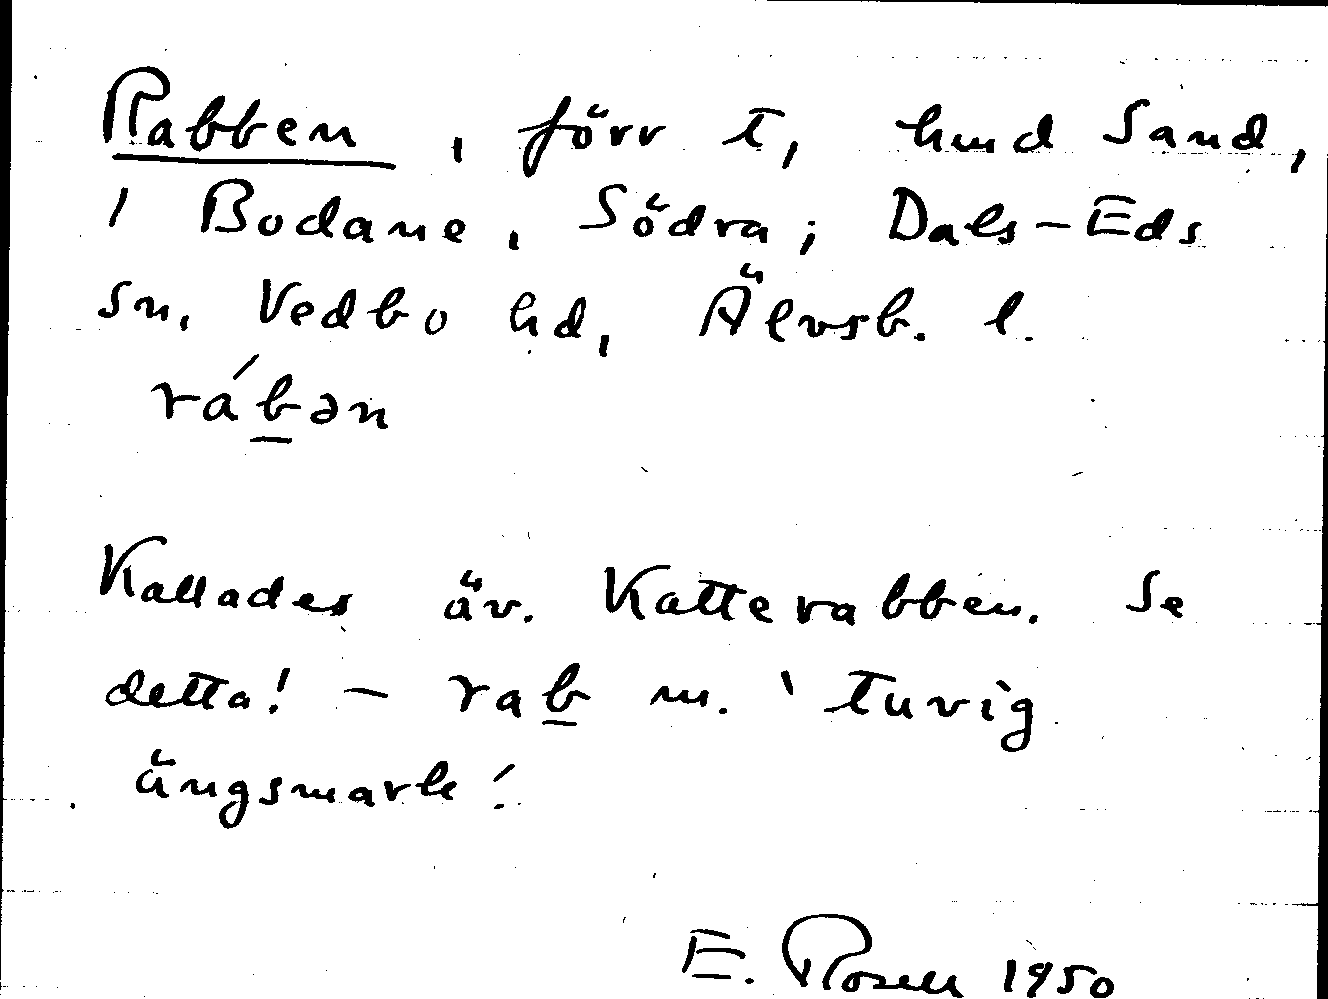 Rabben, förr t, hmd Sand,
1 Bodane, Södra; Dals-Eds
sn, Vedbo hd, Älvsb. l.
rábən
Kallades äv. Katterabben. Se
detta! – rab m. 'tuvig
ängsmark'.
E. Rosell 1950